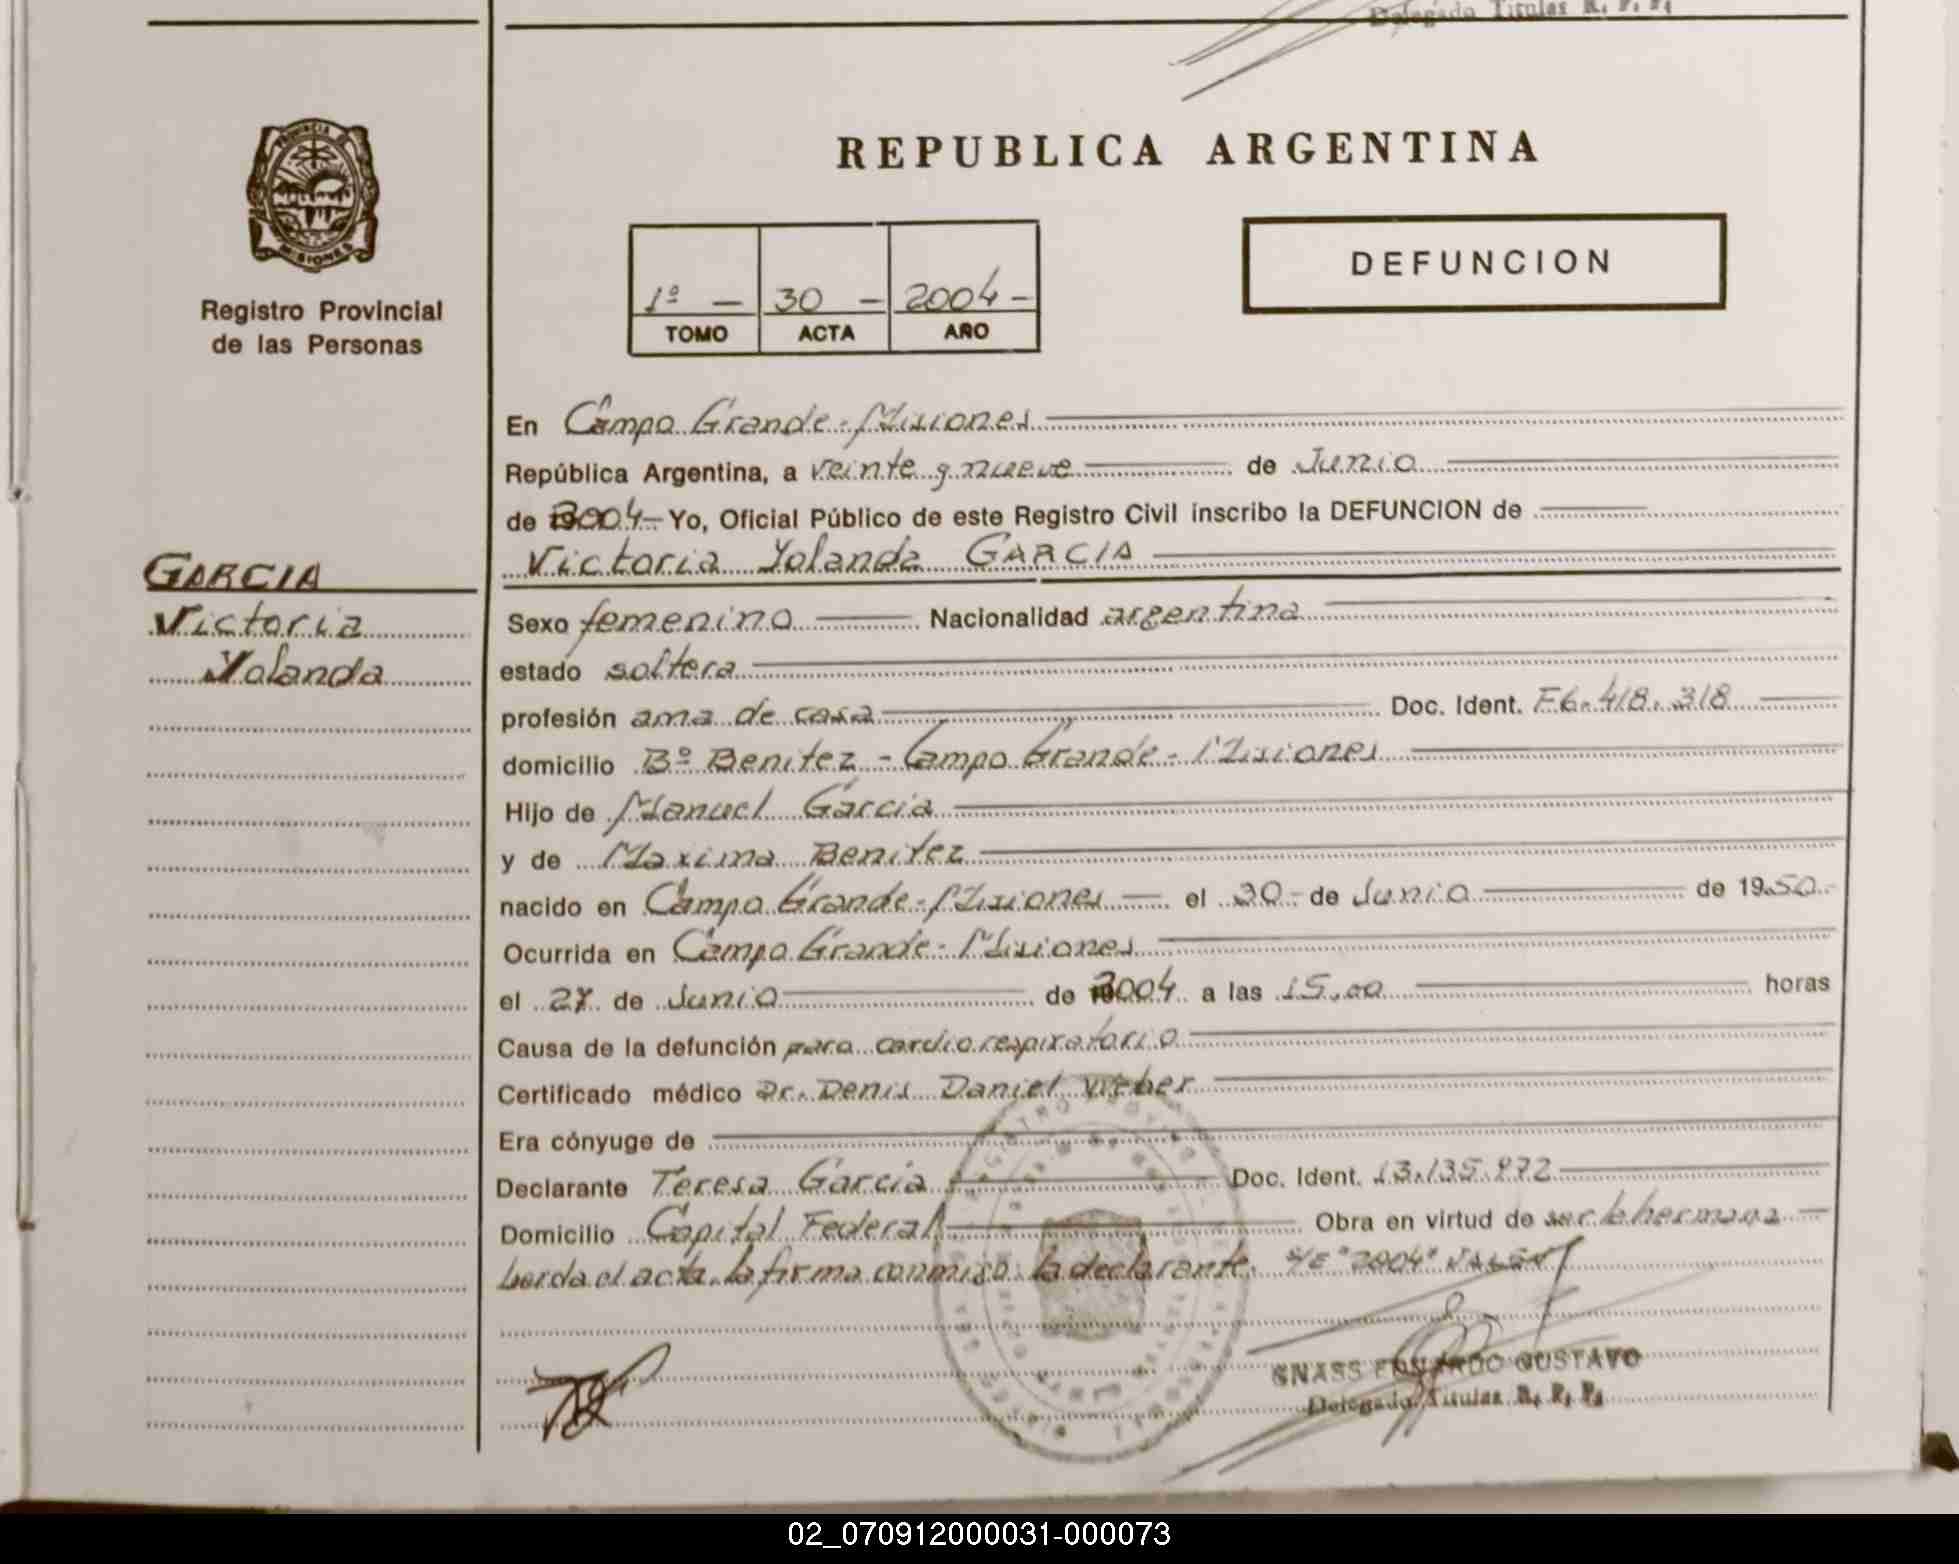 Delegado Titular R. P. P.
PROVINCIA DE
MISIONES
Registro Provincial
de las Personas
REPUBLICA ARGENTINA
1º — 30 — 2004 —
TOMO ACTA AÑO
DEFUNCION
En Campo Grande - Misiones
República Argentina, a veinte y nueve de Junio
de 2004 — Yo, Oficial Público de este Registro Civil inscribo la DEFUNCION de
Victoria Yolanda GARCIA
GARCIA
Victoria
Yolanda
Sexo femenino Nacionalidad argentina
estado soltera
profesión ama de casa Doc. Ident. F6.418.318
domicilio Bº Benitez - Campo Grande - Misiones
Hijo de Manuel Garcia
y de Maxima Benitez
nacido en Campo Grande - Misiones — el 30 - de Junio de 1950 -
Ocurrida en Campo Grande - Misiones
el 27 de Junio de 2004 a las 15,00 horas
Causa de la defunción paro cardio respiratorio
Certificado médico Dr. Denis Daniel Weber
Era cónyuge de
Declarante Teresa Garcia Doc. Ident. 13.135.972
Domicilio Capital Federal Obra en virtud de ser la hermana —
Leida el acta, la firma conmigo la declarante. S/E "2004" VALEN
GNASS EDUARDO GUSTAVO
Delegado Titular R. P. P.
02_070912000031-000073